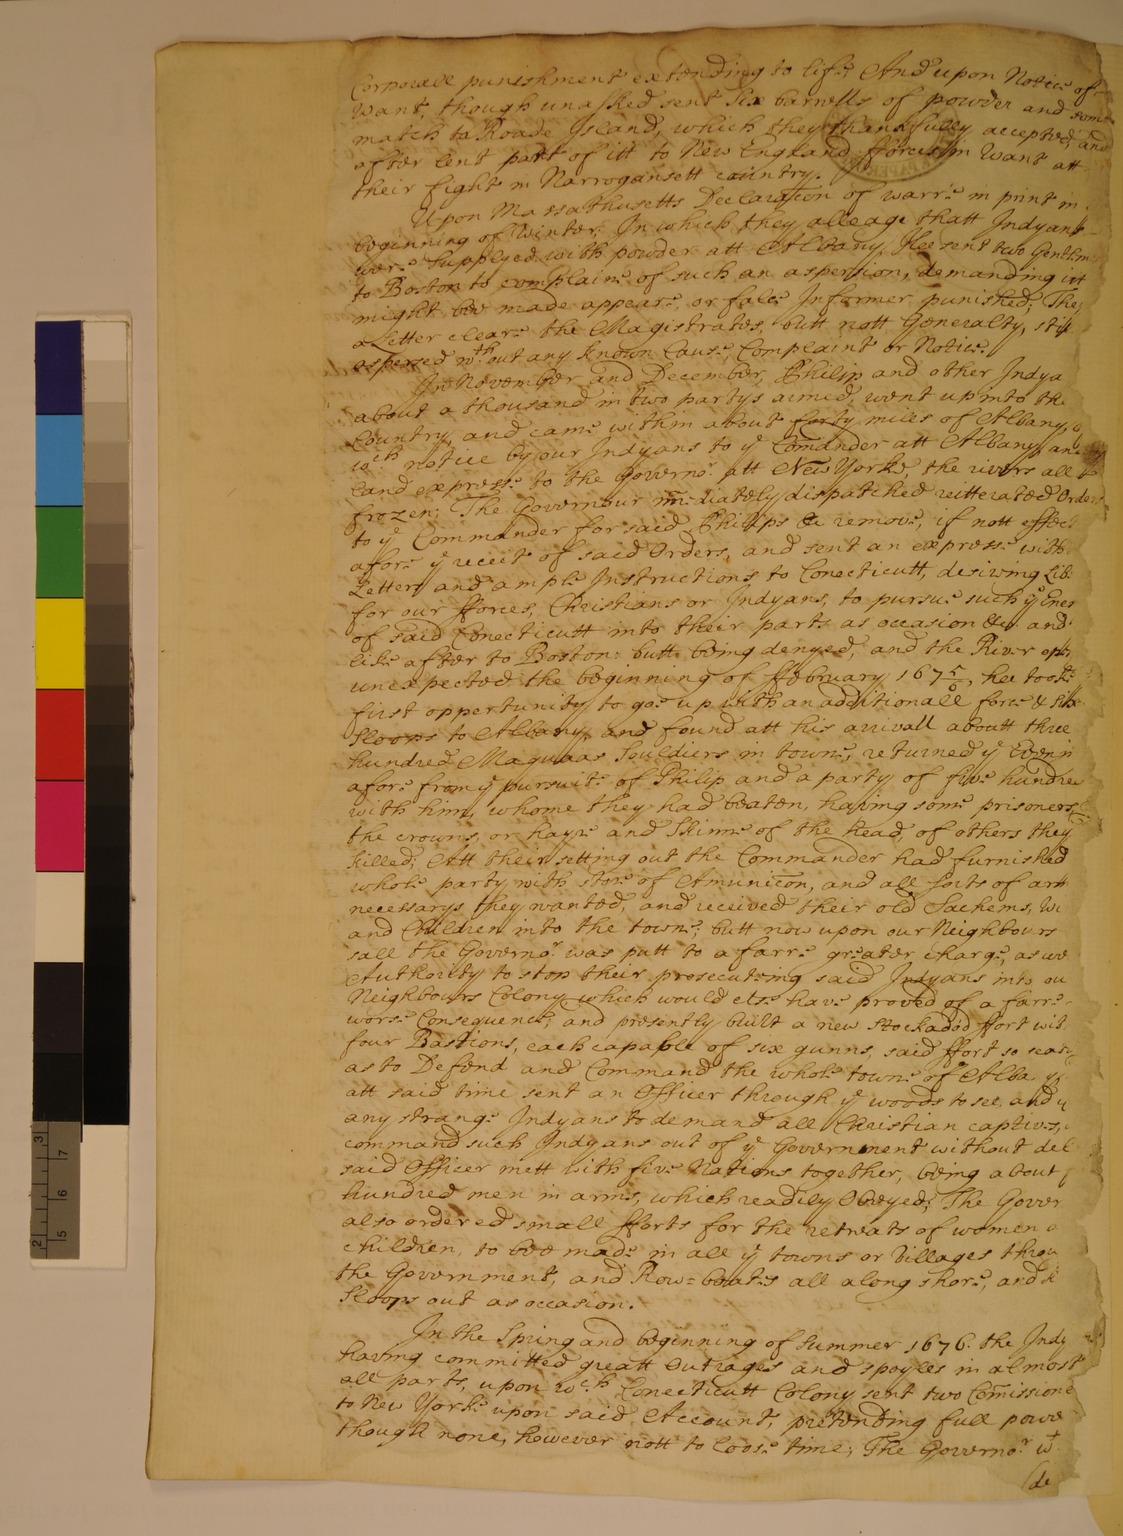 Corporall punishment extending to life. And upon Notice of
want, though unasked sent six barrells of powder and some
match to Roade Island, which they thankfully accepted, and
after lent part of itt to New England fforces in want att
their fight in Narrogansett country.
Upon Massathusetts Declaration of warre in print in
beginning of Winter, In which they alleage thatt Indyans
were supplyed with powder att Albany, Hee sent two Gentlem
to Boston to complaine of such an aspersion, demanding itt
might bee made appeare, or false Informer punished; The
a Letter cleare the Magistrates, butt nott Generalty, still
aspersed wth out any known Cause, Complaint or Notice.
In November and December, Philip and other Indya
about a thousand in two partys armed, went up into the
Country, and came within about forty miles of Albany, o
wch notice by our Indyans to ye Comander att Albany, and
land expresse to the Governor att New Yorke the rivers all
frozen: The Governour imediately dispatched reitterated Orders
to ye Commander for said Philips &c remove, if nott effec
afore ye receit of said Orders, and sent an expresse with
Letters and ample Instructions to Conecticutt, desiring Lib:
for our fforces, Christians or Indyans, to pursue such ye Enem
of said Conecticutt into their parts as occasion &c and
like after to Boston: butt being denyed, and the River open
unexpected the beginning of ffebruary 167 5/6, hee tooke
first oppertunity to goe up with an additionall force & six
Sloops to Albany, and found att his arrivall aboutt three
hundred Maquaas Souldiers in towne, returned ye Evenin
afore from ye pursuite of Philip and a party of five hundred
with him, whome they had beaten, having some prisoners &
the crowns, or hayre and Skinne of the head of others they
killed; Att their setting out the Commander had furnished
whole party with store of Amunicon, and all sorts of arm
necessarys they wanted, and received their old Sachems, Wi
and Children into the towne; butt now upon our Neighbours
sall the Governor was putt to a farre greater charge, as we
Authority to stop their prosecuteing said Indyans into ou
Neighbours Colony which would else have proved of a farre
worse Consequence; and presently built a new Stockadod ffort wit
four Bastions, each capable of six gunns, said ffort so seatu
as to Defend and Command the whole towne of Alba y
att said time sent an Officer through ye woods to see and y
any strange Indyans to demand all Christian captives,
command such Indyans out of ye Government without del
said Officer mett with five Nations together, being about f
hundred men in arms, which readily Obeyed; The Gover
also ordered small fforts for the retreats of women a
children, to bee made in all ye towns or Villages throu
the Government, and Row=boates all along shore, and
Sloops out as occasion.
In the Spring and beginning of Summer 1676. the Indy
having committed greatt Outrages and spoyles in almost
all parts, upon wch Conecticutt Colony sent two Comissione
to New Yorke upon said Account, pretending full powe
though none, however nott to loose time; The Governor wt
(de